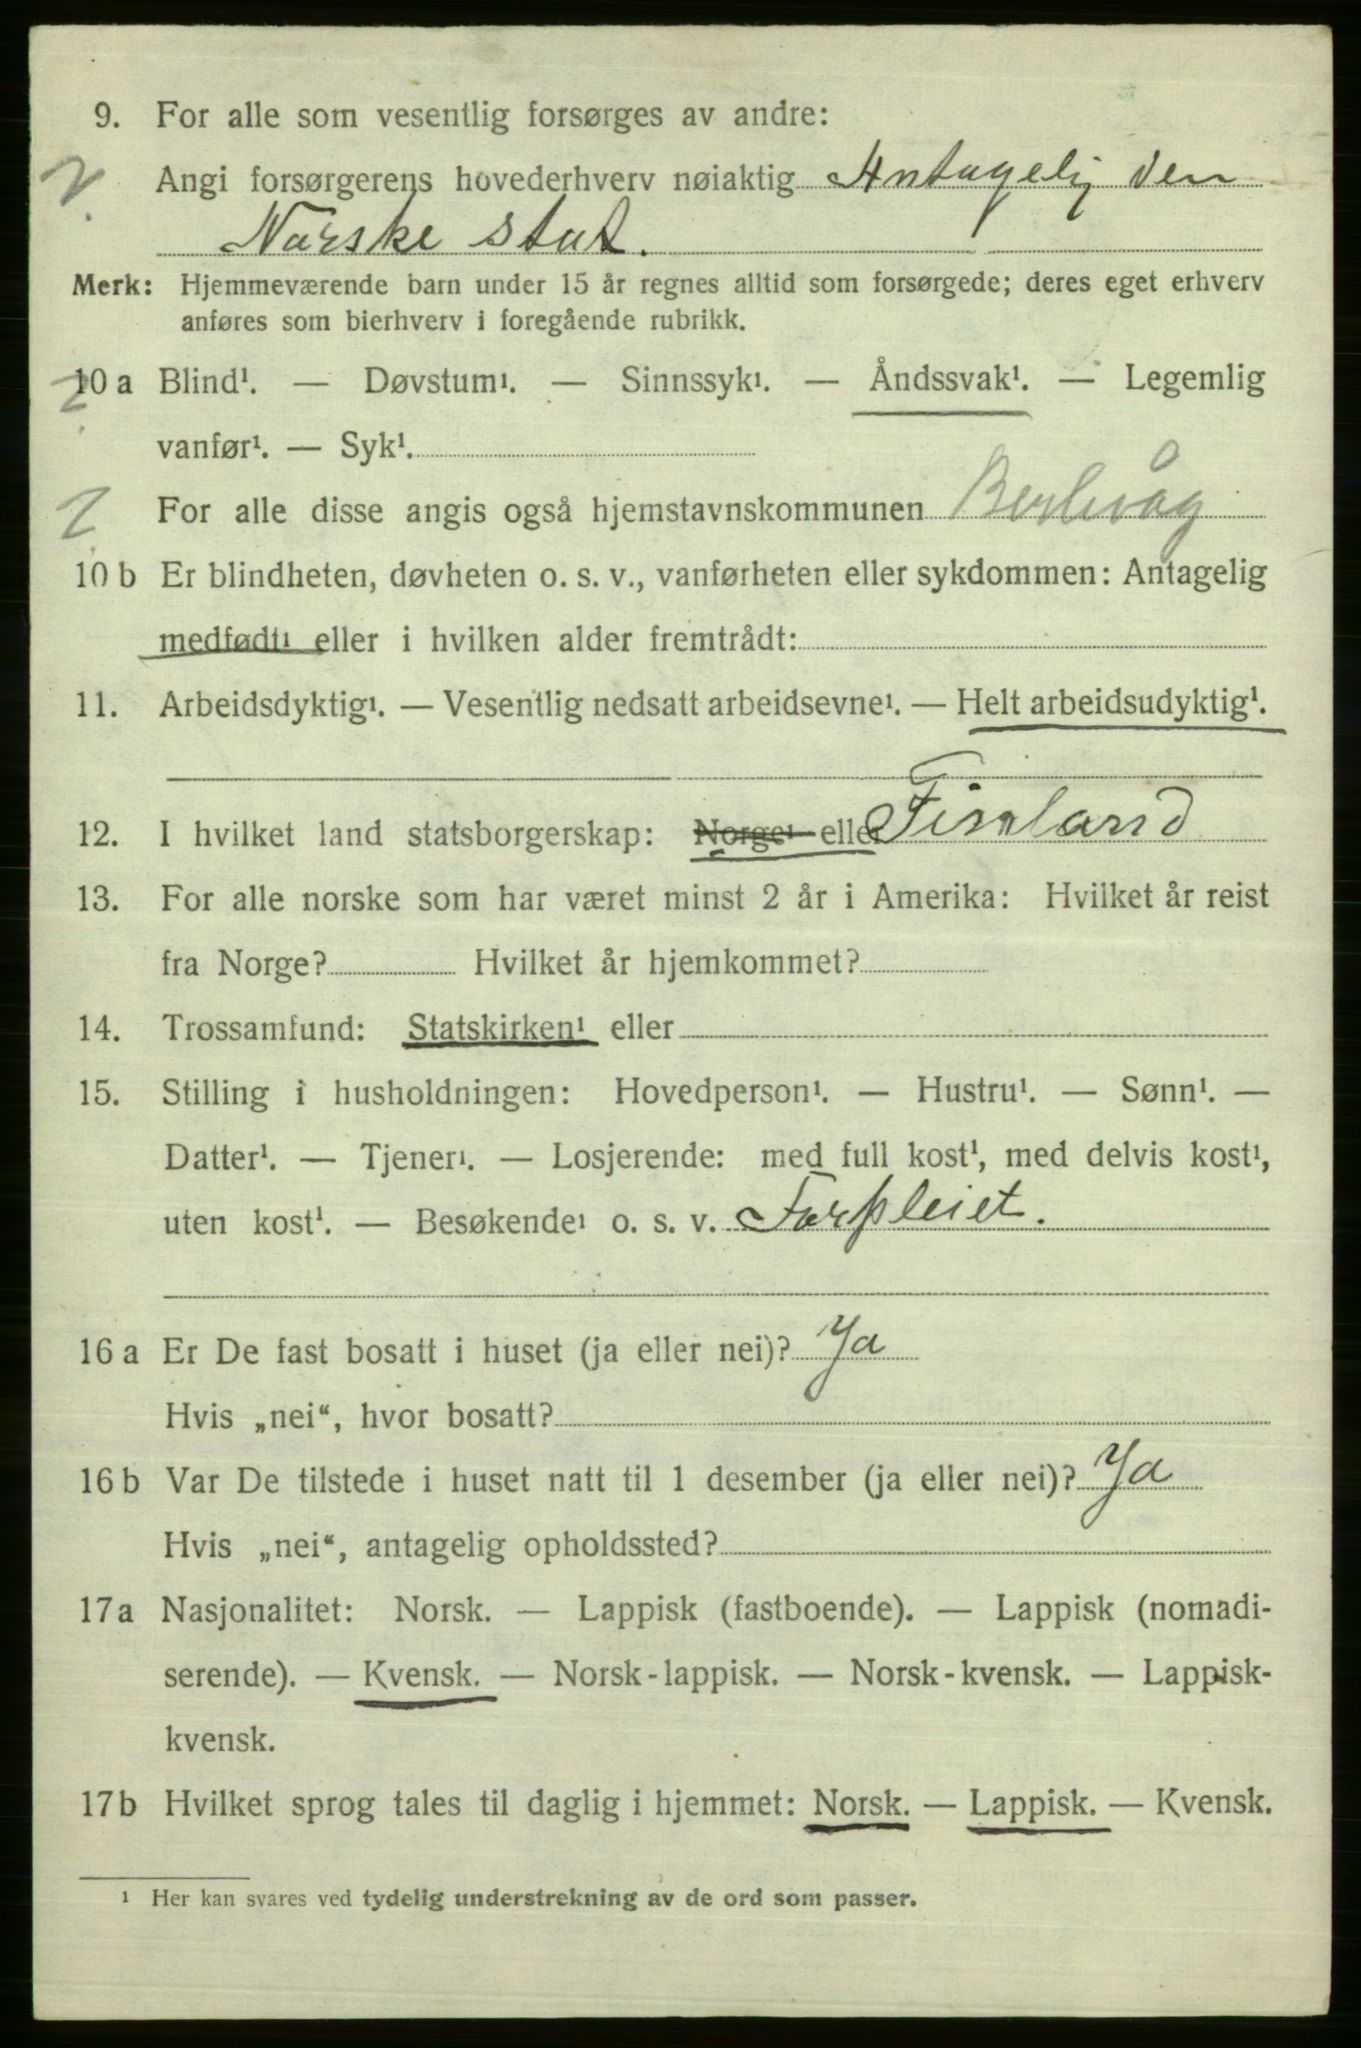 9. For alle som vesentlig forsørges av andre:
? Angi forsørgerens hovederhverv nøiaktig Antagelig den
Norske stat.
Merk: Hjemmeværende barn under 15 år regnes alltid som forsørgede; deres eget erhverv
anføres som bierhverv i foregående rubrikk.
? 10 a Blind¹. — Døvstum¹. — Sinnssyk¹. — Åndssvak¹. — Legemlig
vanfør¹. — Syk¹.
? For alle disse angis også hjemstavnskommunen Berlevåg
10 b Er blindheten, døvheten o. s. v., vanførheten eller sykdommen: Antagelig
medfødt¹ eller i hvilken alder fremtrådt:
11. Arbeidsdyktig¹. — Vesentlig nedsatt arbeidsevne¹. — Helt arbeidsudyktig¹.
12. I hvilket land statsborgerskap: Norge¹ eller Finland
13. For alle norske som har været minst 2 år i Amerika: Hvilket år reist
fra Norge? Hvilket år hjemkommet?
14. Trossamfund: Statskirken¹ eller
15. Stilling i husholdningen: Hovedperson¹. — Hustru¹. — Sønn¹. —
Datter¹. — Tjener¹. — Losjerende: med full kost¹, med delvis kost¹,
uten kost¹. — Besøkende¹ o. s. v. Forpleiet.
16 a Er De fast bosatt i huset (ja eller nei)? Ja
Hvis „nei“, hvor bosatt?
16 b Var De tilstede i huset natt til 1 desember (ja eller nei)? Ja
Hvis „nei“, antagelig opholdssted?
17 a Nasjonalitet: Norsk. — Lappisk (fastboende). — Lappisk (nomadi-
serende). — Kvensk. — Norsk-lappisk. — Norsk-kvensk. — Lappisk-
kvensk.
17 b Hvilket sprog tales til daglig i hjemmet: Norsk. — Lappisk. — Kvensk.
¹ Her kan svares ved tydelig understrekning av de ord som passer.